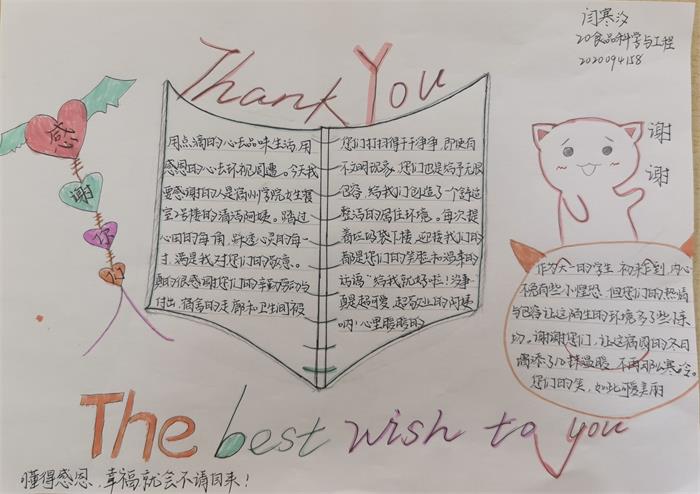 闫寒汐
20食品科学与工程
2020094158
Thank You
感
谢
你
们
用点滴的心去品味生活,用
感恩的心去环视周遭。今天我
要感谢的人是宿州学院女生寝
室2号楼的清洁阿姨。踏过
心田的每一角,踩透心灵的每一
寸,满是我对您们的敬意。
真的很感谢您们的辛勤劳动与
付出,宿舍的走廊和卫生间被
您们打扫得干干净净,即使有
不文明现象,您们也是给予无限
包容,给我们创造了一个舒适
整洁的居住环境。每次提
着垃圾袋下楼,迎接我们的
都是您们的笑容和温柔的
话语“给我就好啦!没事”
真是超可爱,超敬业的阿姨
呐,心里暖暖的
谢
谢
作为大一的学生,初来乍到,内心
不免有些小惶恐,但您们的热情
与包容让这陌生的环境多了些亲
切。谢谢您们,让这校园的冬日
增添了几抹温暖,不再那么寒冷。
您们的笑,如此可爱美丽
The best wish to you
懂得感恩,幸福就会不请自来!